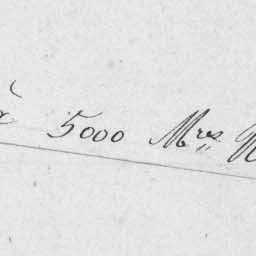 5000 Mrs